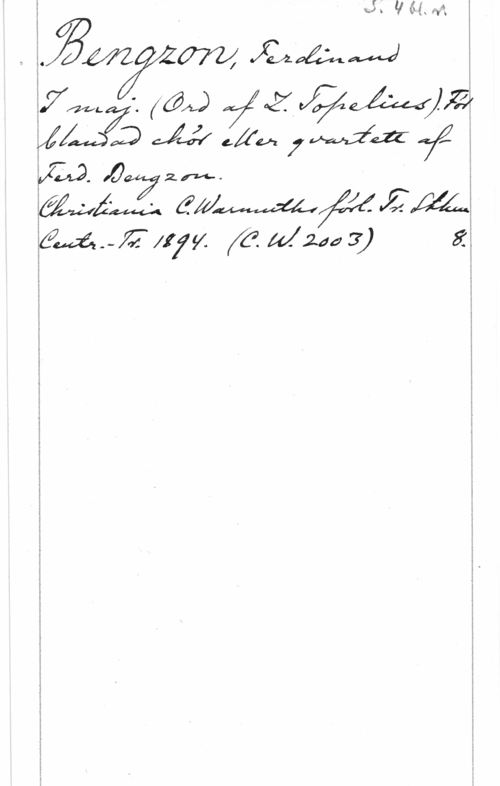 S. 4 bl. vr.
Bengzon, Ferdinand
I maj. (Ord af Z. Topelius). För
blandad chör eller qvartett af
Ferd. Bengzon.
Christiania C. Warmuths förl. Tr. Sthm
Centr.-Tr. 1894. (C. W. 2003) 8.